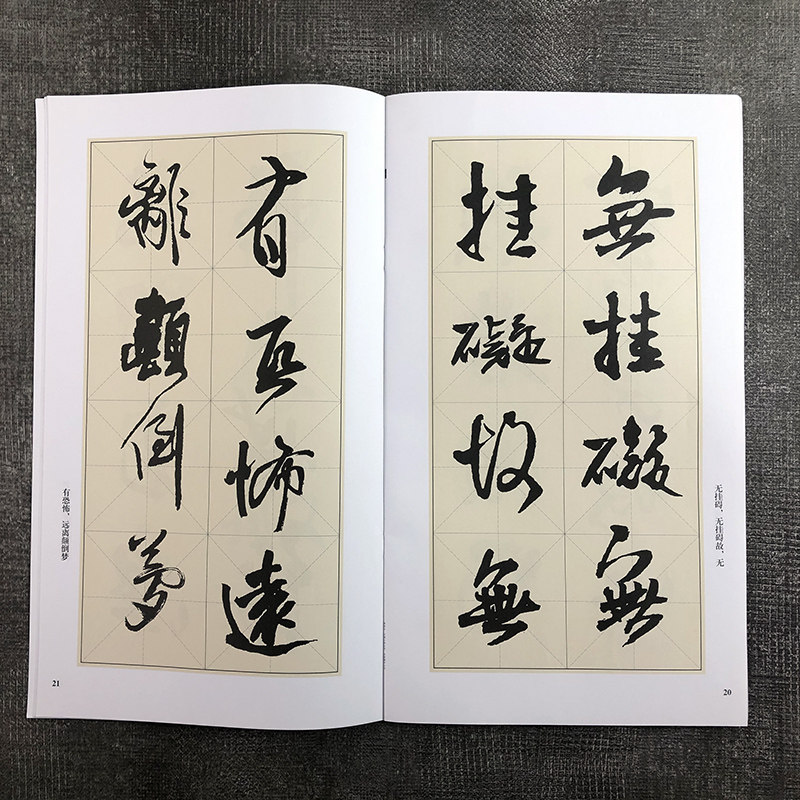 無挂礙無
挂礙故無
无挂碍，无挂碍故，无
20
有恐怖遠
離顛倒夢
有恐怖，远离颠倒梦
21